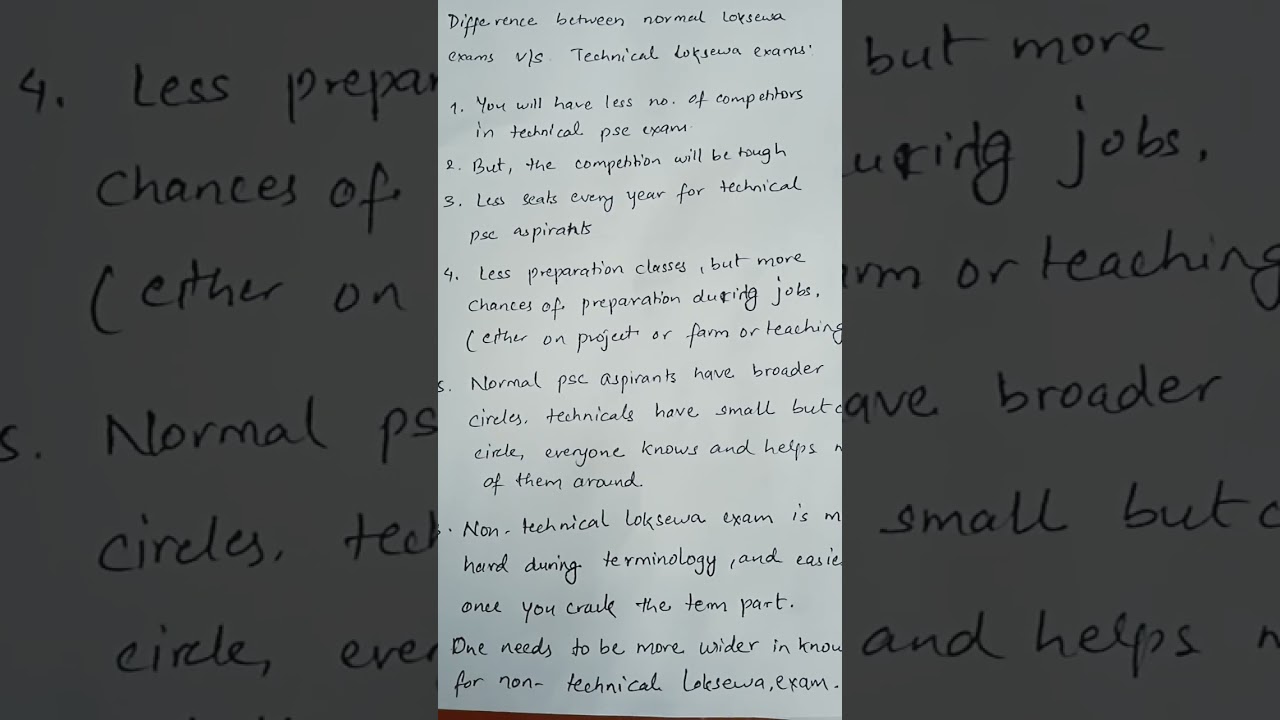 Difference between normal loksewa
exams v/s. Technical loksewa exams.
1. You will have less no. of competitors
in technical psc exam.
2. But, the competition will be tough
3. Less seats every year for technical
psc aspirants
4. Less preparation classes, but more
chances of preparation during jobs.
(either on project or farm or teaching
5. Normal psc aspirants have broader
circles. technicals have small but
circle, everyone knows and helps
of them around.
Non-technical loksewa exam is
hard during terminology, and easie
once you crack the term part.
One needs to be more wider in know
for non-technical loksewa, exam.